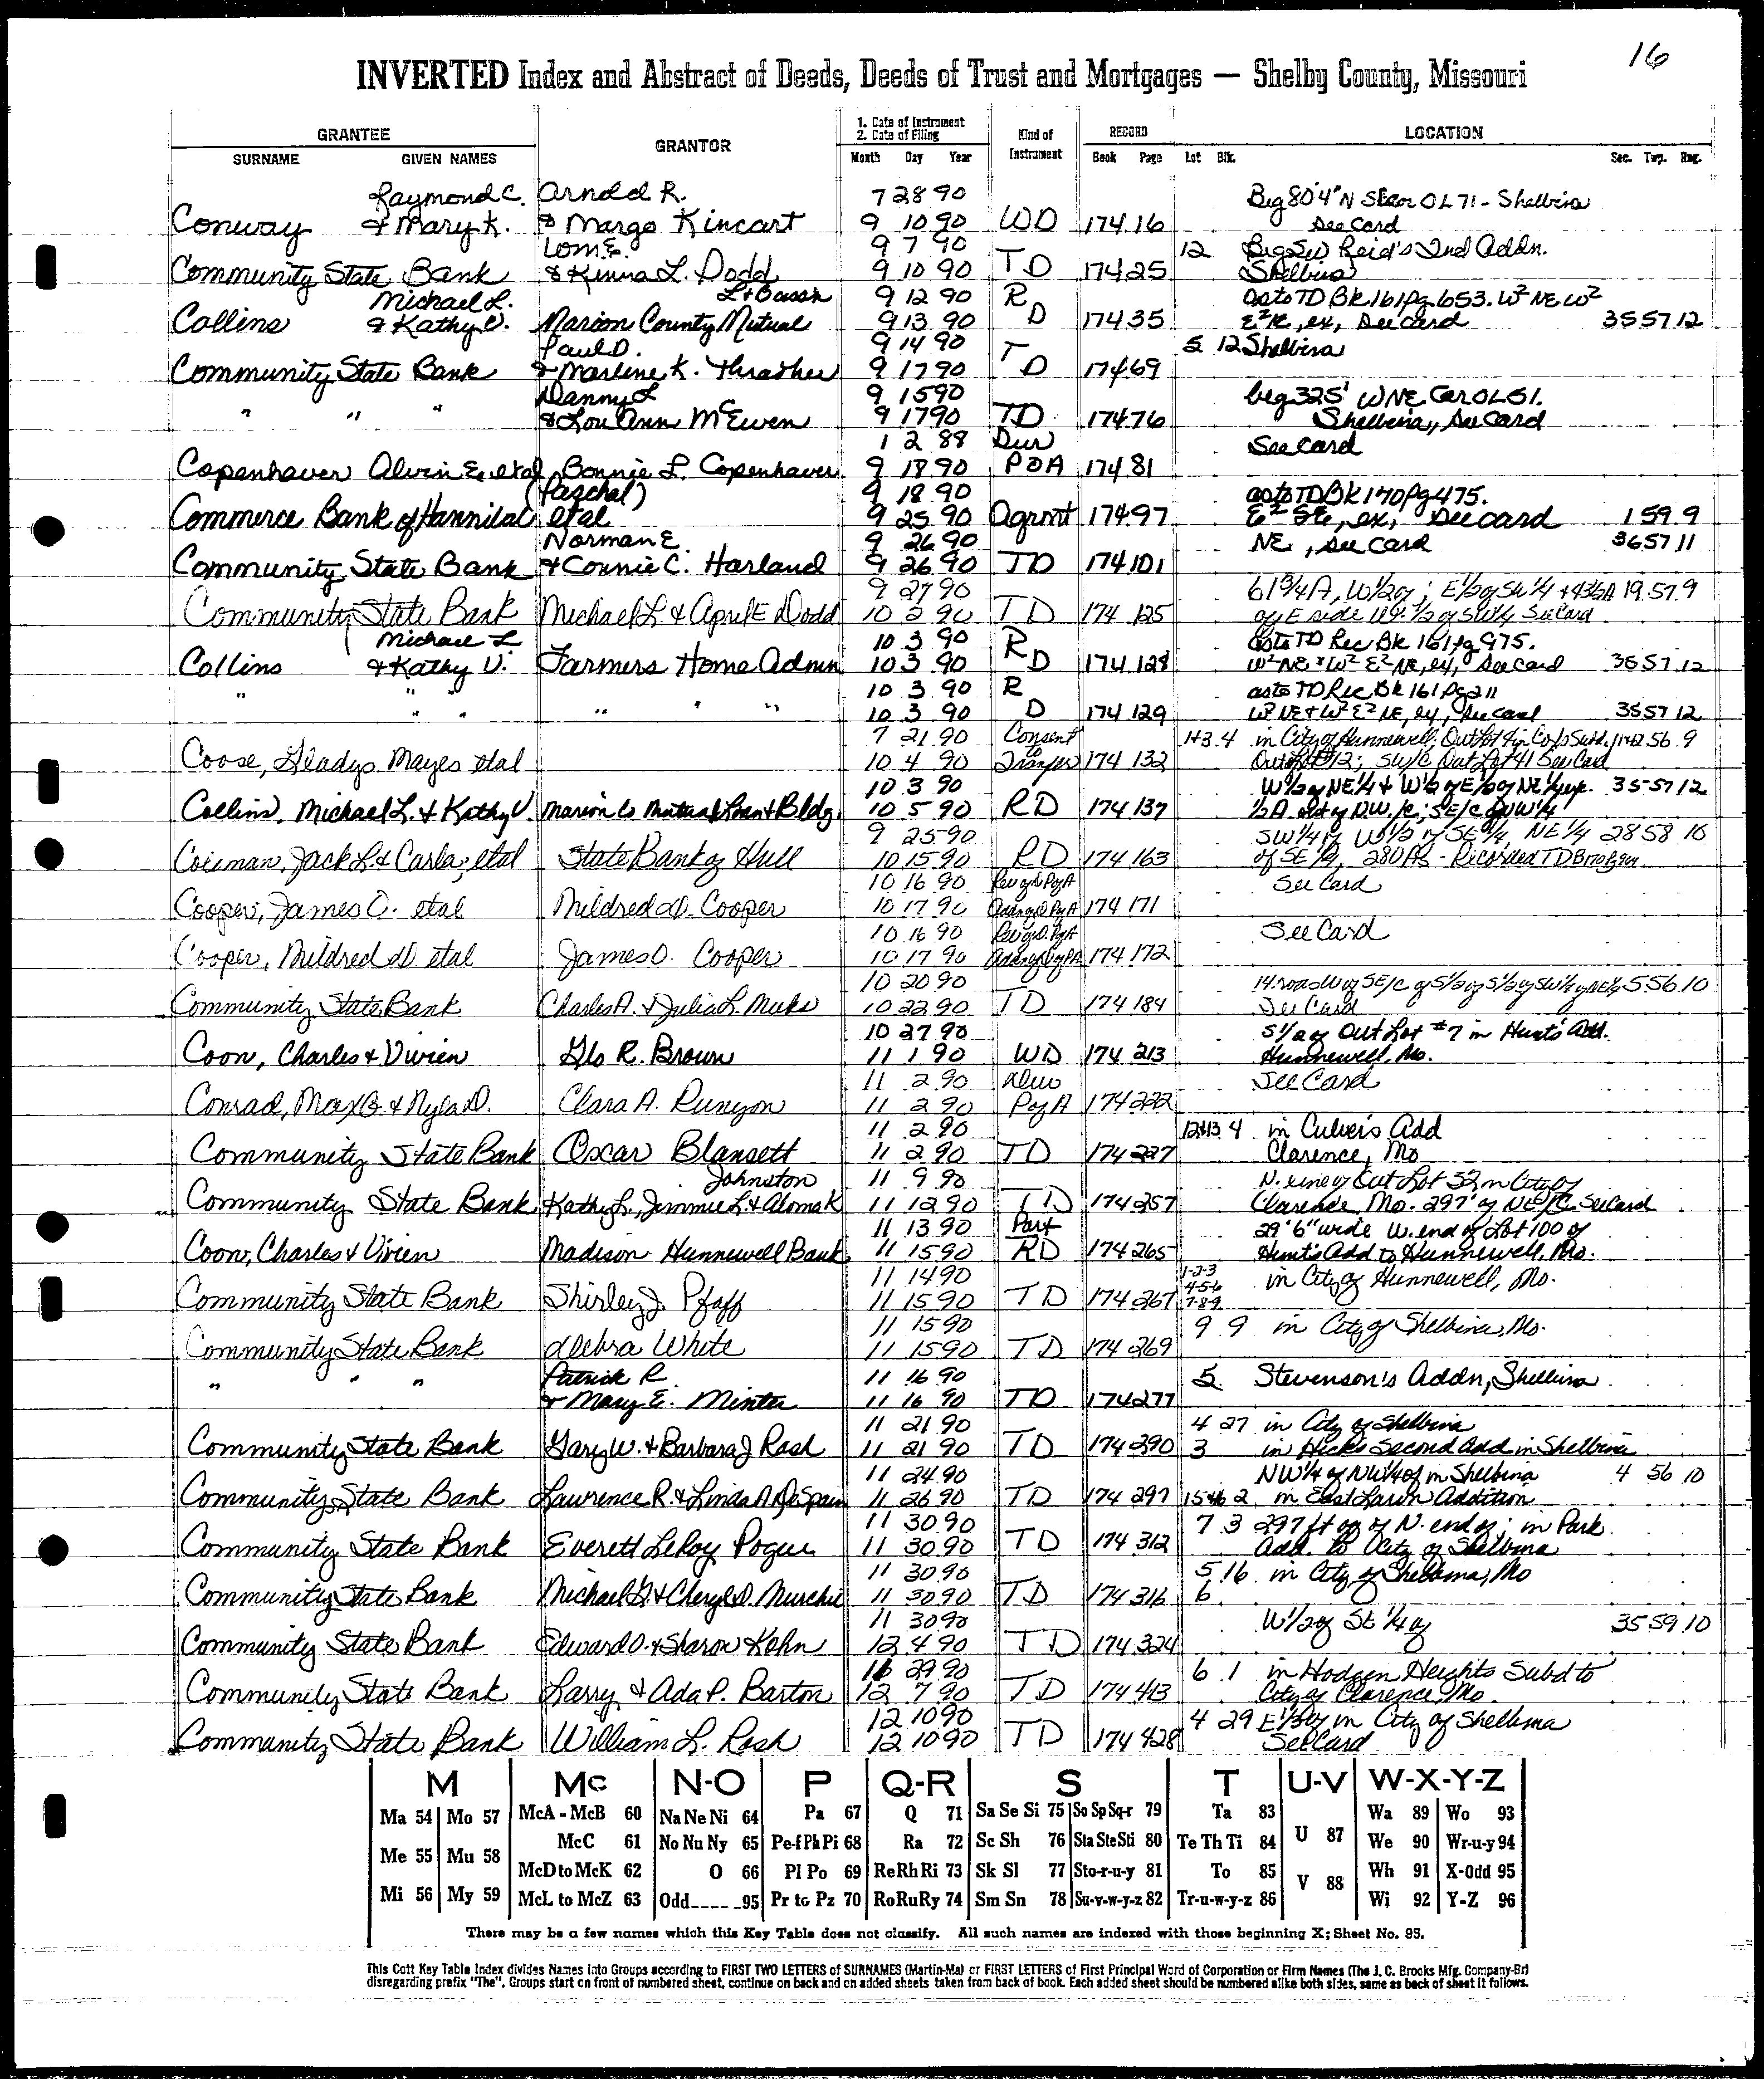 16
INVERTED Index and Abstract of Deeds, Deeds of Trust and Mortgages — Shelby County, Missouri
GRANTEE GRANTOR 1. Date of Instrument 2. Date of Filing Kind of Instrument RECORD LOCATION
SURNAME GIVEN NAMES Month Day Year Book Page Lot Blk. Sec. Twp. Rng.
Raymond C. Arnold R. 7 28 90 Beg 80'4" N SE cor OL 71 - Shelbina
Conway & Mary K. & Margo Kincart 9 10 90 WD 174 16 See Card
Lom E. 9 7 90 12 Beg SW Reid's 2nd Addn.
Community State Bank & Kenna L. Dodd 9 10 90 TD 174 25 Shelbina
Michael L. L & Bassn 9 12 90 R as to TD Bk 161 Pg 653. W² NE W²
Collins & Kathy V. Marion County Mutual 9 13 90 D 174 35 E² NE, ex, See card 35 57 12
Paul D. 9 14 90 T 5 12 Shelbina
Community State Bank & Marlene K. Thrasher 9 17 90 D 174 69
Danny L 9 15 90 beg 325' W NE Cor OL 51.
" " " & Lou Ann McEwen 9 17 90 TD 174 76 Shelbina, See Card
1 2 88 Dur See Card
Copenhaver Alvin E. etal Bonnie L. Copenhaver 9 18 90 POA 174 81
(Paschal) 9 18 90 as to TD Bk 170 Pg 475.
Commerce Bank of Hannibal etal 9 25 90 Agrmt 174 97 E² SE, ex, See card 1 59 9
Norman E. 9 26 90 NE, See Card 36 57 11
Community State Bank & Connie C. Harland 9 26 90 TD 174 101
9 27 90 61 3/4 A, W 1/2 of; E 1/2 of SW 1/4 + 43 1/2 A 19 57 9
Community State Bank Michael L & April E Dodd 10 2 90 TD 174 125 of E side W 1/2 of SW 1/4 See Card
Michael L 10 3 90 R as to TD Rec Bk 161 Pg 975.
Collins & Kathy V. Farmers Home Admn 10 3 90 D 174 128 W² NE & W² E² NE, ex, See Card 35 57 12
10 3 90 R as to TD Rec Bk 161 Pg 211
" " " " " " 10 3 90 D 174 129 W² NE & W² E² NE, ex, See card 35 57 12
7 21 90 Consent 1+3 4 in City of Hunnewell; Out Lot 4 in Co's Subd. 1+12 56 9
Coose, Gladys Mayes etal 10 4 90 to Transfer 174 132 Out Lot #12; SW/C Out Lot 41 See Card
10 3 90 W 1/2 of NE 1/4 + W 1/2 of E 1/2 of NE 1/4 ex. 35 57 12
Collins, Michael L. & Kathy V. Marion Co Mutual Loan & Bldg 10 5 90 RD 174 137 1/2 A out of N.W./c; SE/c of NW 1/4
9 25 90 SW 1/4 of W 1/2 of SE 1/4, NE 1/4 28 58 10
Coleman, Jack L. & Carla, etal State Bank of Hull 10 15 90 RD 174 163 of SE 1/4, 280 As - Recorded TD
10 16 90 Rev of D Pof A See Card
Cooper, James O. etal Mildred D. Cooper 10 17 90 174 171
10 16 90 Rev of D. Pof A See Card
Cooper, Mildred D etal James O. Cooper 10 17 90 174 172
10 20 90 14 rods W of SE/c of S 1/2 of S 1/2 of SW 1/4 of NE 1/4 5 56 10
Community State Bank Charles A. & Julia L. Meeks 10 22 90 TD 174 184 See Card
10 27 90 S 1/2 of Out Lot #7 in Hunt's Add.
Coon, Charles & Vivien Glo R. Brown 11 1 90 WD 174 213 Hunnewell, Mo.
11 2 90 Dur See Card
Conrad, Max G. & Nyla D. Clara A. Runyon 11 2 90 Pof A 174 222
11 2 90 12+13 4 in Culver's Add
Community State Bank Oscar Blansett 11 2 90 TD 174 227 Clarence, Mo
Johnston 11 9 90 N. line of Out Lot 32 in City of
Community State Bank Kathy L., Jimmie L. & Aloma K 11 12 90 TD 174 257 Clarence Mo. 297' of NE/C. See Card
11 13 90 Part 29'6" wide W. end of Lot 100 of
Coon, Charles & Vivien Madison Hunnewell Bank 11 15 90 RD 174 265 Hunt's Add to Hunnewell, Mo.
11 14 90 1-2-3 4-5-6 in City of Hunnewell, Mo.
Community State Bank Shirley J. Pfaff 11 15 90 TD 174 267 7-8-9
11 15 90 9 9 in City of Shelbina, Mo.
Community State Bank Debra White 11 15 90 TD 174 269
Patrick R. 11 16 90 5 Stevenson's Addn, Shelbina
" " " & Mary E. Minter 11 16 90 TD 174 277
11 21 90 4 27 in City of Shelbina
Community State Bank Gary W. & Barbara J Rash 11 21 90 TD 174 290 3 in Hicks Second Add in Shelbina
11 24 90 NW 1/4 of NW 1/4 of in Shelbina 4 56 10
Community State Bank Lawrence R. & Linda A DeSpain 11 26 90 TD 174 297 15+16 2 in East Lawn Addition
11 30 90 7 3 297 ft of of N. end of; in Park
Community State Bank Everett LeRoy Pogue 11 30 90 TD 174 312 Add. to City of Shelbina
11 30 90 5 16 in City of Shelbina, Mo
Community State Bank Michael G. & Cheryl D. Murchie 11 30 90 TD 174 316 6
11 30 90 W 1/2 of SE 1/4 of 35 59 10
Community State Bank Edward O. & Sharon Kohn 12 4 90 TD 174 324
11 29 90 6 1 in Hodgen Heights Subd to
Community State Bank Larry & Ada P. Barton 12 7 90 TD 174 413 City of Clarence, Mo.
12 10 90 4 29 E 1/2 of in City of Shelbina
Community State Bank William L. Rash 12 10 90 TD 174 428 See Card
M Mc N-O P Q-R S T U-V W-X-Y-Z
Ma 54 Mo 57 McA - McB 60 Na Ne Ni 64 Pa 67 Q 71 Sa Se Si 75 So Sp Sq-r 79 Ta 83 Wa 89 Wo 93
McC 61 No Nu Ny 65 Pe-f Ph Pi 68 Ra 72 Sc Sh 76 Sta Ste Sti 80 Te Th Ti 84 U 87 We 90 Wr-u-y 94
Me 55 Mu 58 McD to McK 62 O 66 Pl Po 69 Re Rh Ri 73 Sk Sl 77 Sto-r-u-y 81 To 85 V 88 Wh 91 X-Odd 95
Mi 56 My 59 McL to McZ 63 Odd_____95 Pr to Pz 70 Ro Ru Ry 74 Sm Sn 78 Su-v-w-y-z 82 Tr-u-w-y-z 86 Wi 92 Y-Z 96
There may be a few names which this Key Table does not classify. All such names are indexed with those beginning X; Sheet No. 95.
This Cott Key Table Index divides Names into Groups according to FIRST TWO LETTERS of SURNAMES (Martin-Ma) or FIRST LETTERS of First Principal Word of Corporation or Firm Names (The J. C. Brooks Mfg. Company-Br)
disregarding prefix "The". Groups start on front of numbered sheet, continue on back and on added sheets taken from back of book. Each added sheet should be numbered alike both sides, same as back of sheet it follows.